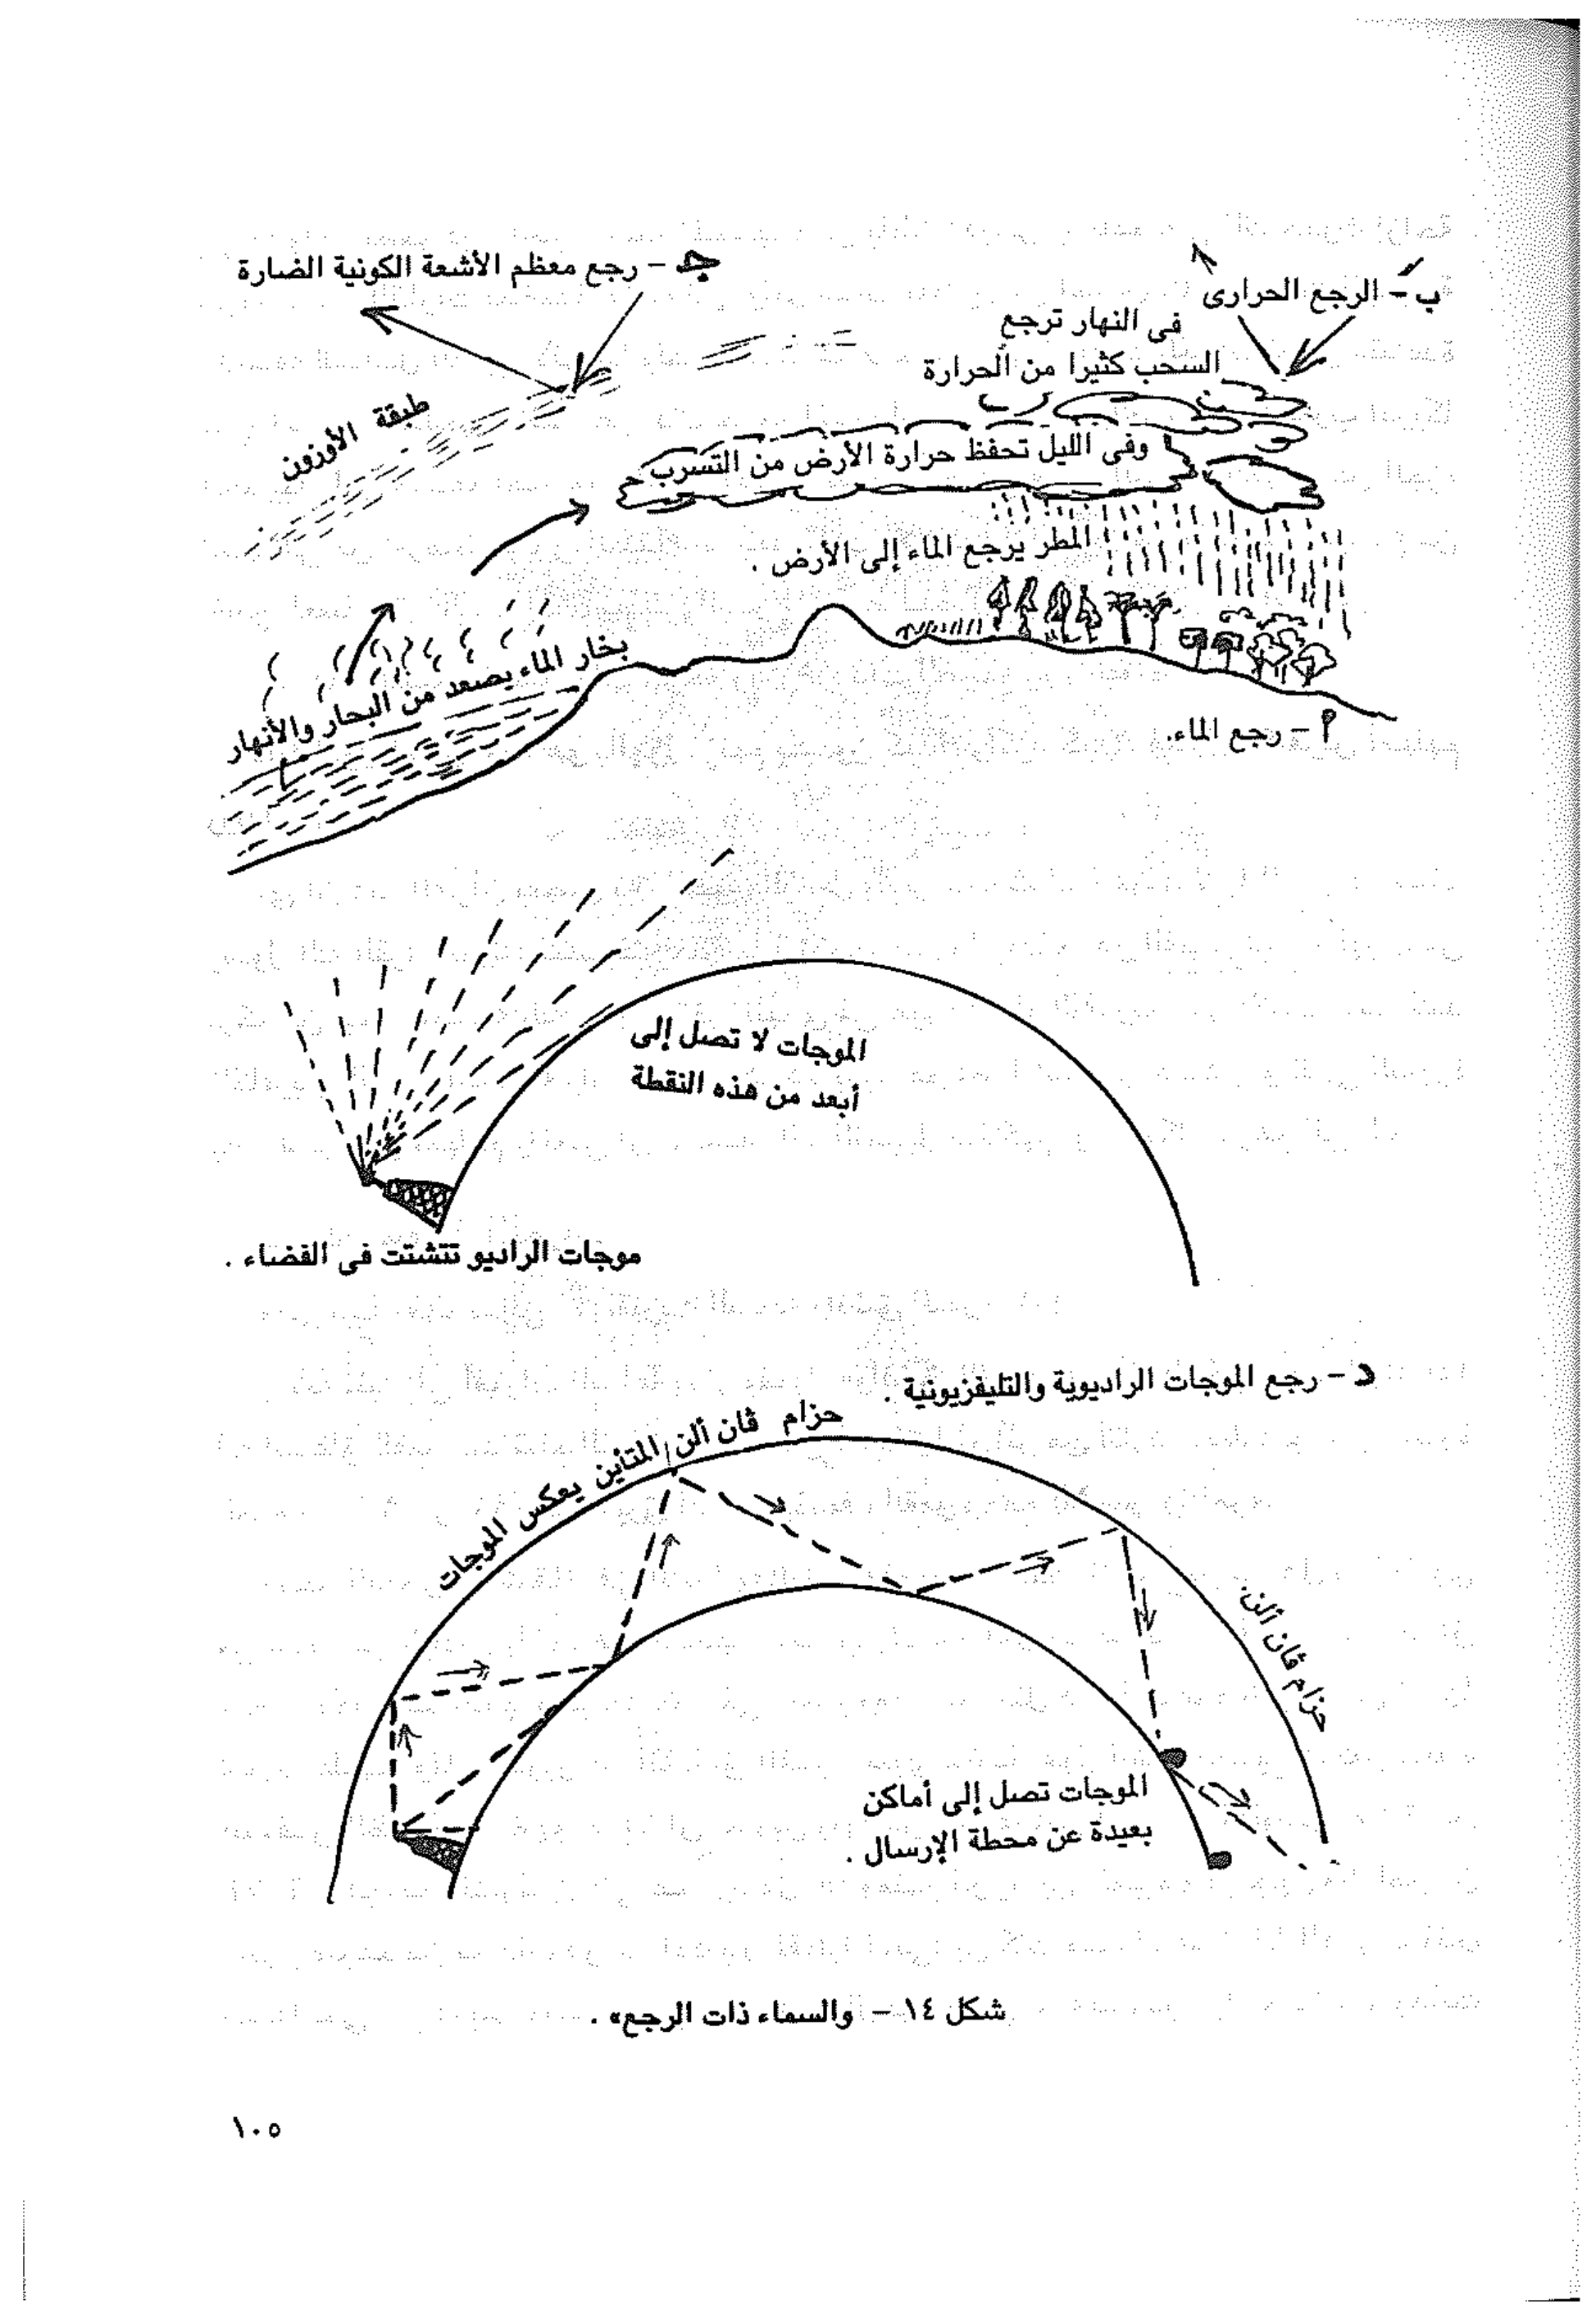 جـ – رجع معظم الأشعة الكونية الضارة
ب – الرجع الحرارى
فى النهار ترجع
السحب كثيرا من الحرارة
طبقة الأوزون
وفى الليل تحفظ حرارة الأرض من التسرب
المطر يرجع الماء إلى الأرض .
بخار الماء يصعد من البحار والأنهار
أ – رجع الماء.
الموجات لا تصل إلى
أبعد من هذه النقطة
موجات الراديو تتشتت فى الفضاء .
د – رجع الموجات الراديوية والتليفزيونية .
حزام ڤان ألن المتأين يعكس الموجات
حزام ڤان ألن.
الموجات تصل إلى أماكن
بعيدة عن محطة الإرسال .
شكل ١٤ – والسماء ذات الرجع» .
١٠٥